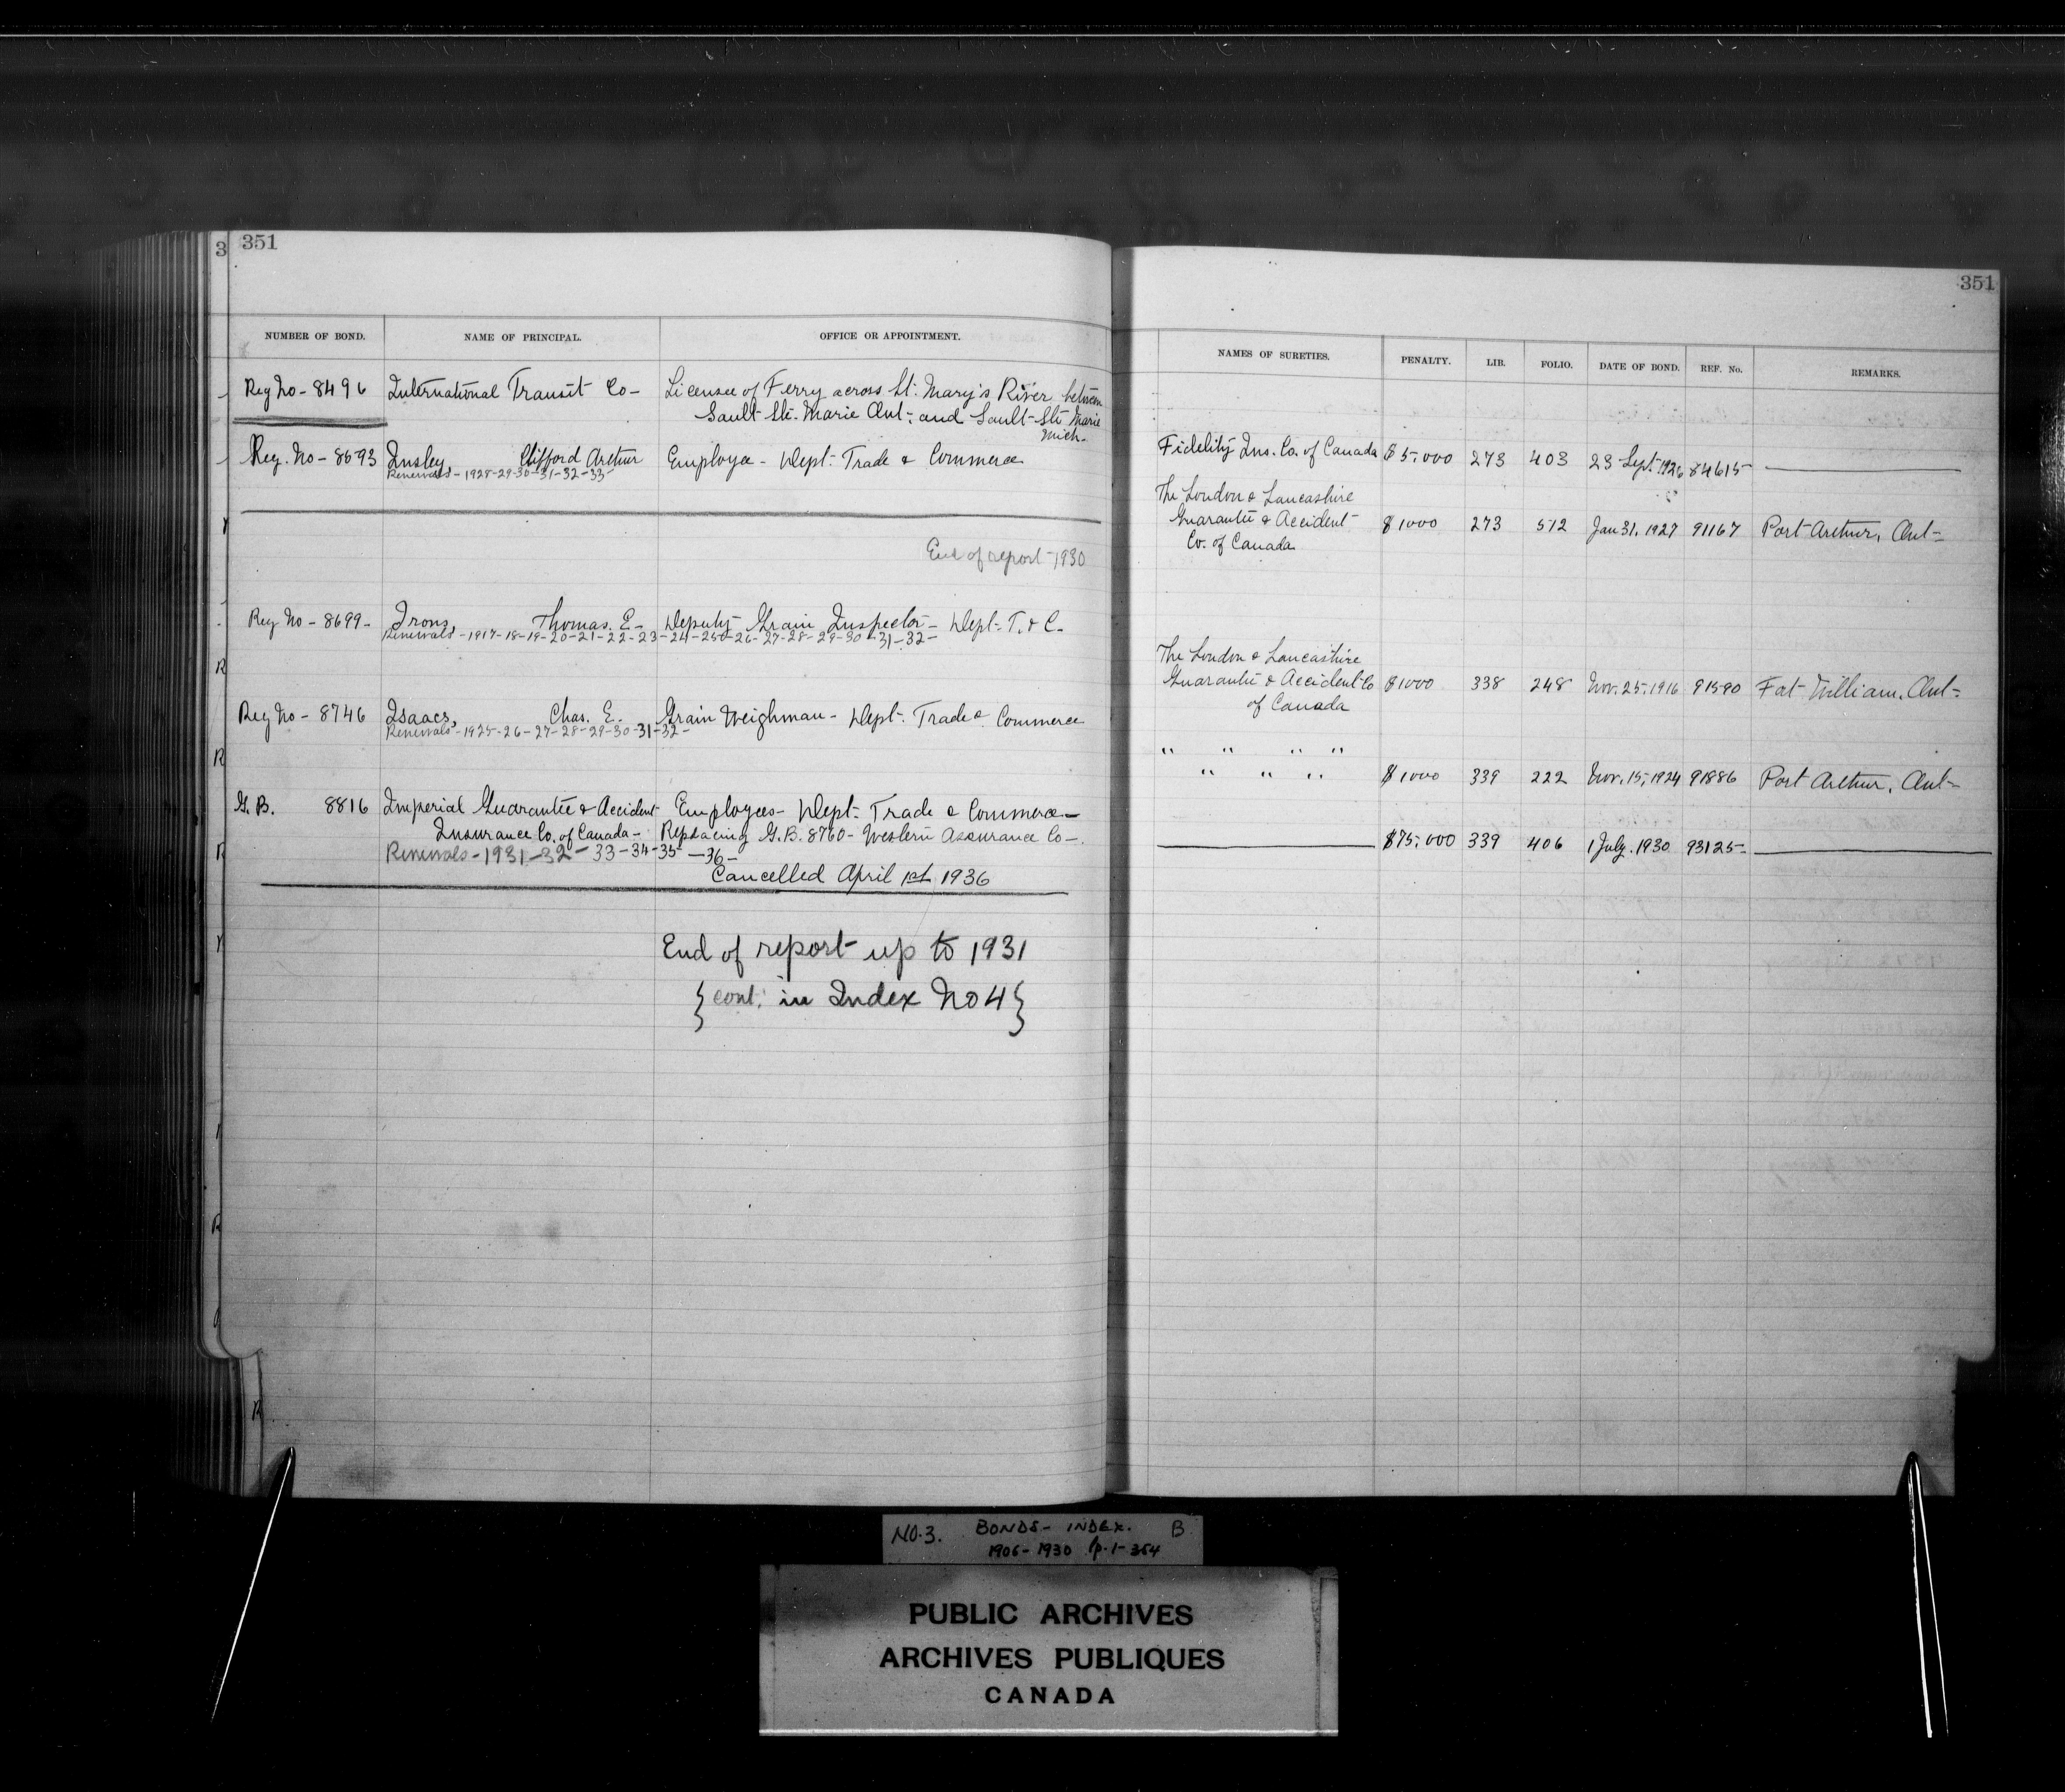 351
3
NUMBER OF BOND. NAME OF PRINCIPAL. OFFICE OR APPOINTMENT.
Reg No - 8496 International Transit Co - Licensee of Ferry across St. Mary's River between
Sault Ste. Marie Ont. and Sault Ste Marie
Mich.
Reg. No - 8693 Insley, Clifford Arthur Employee - Dept. Trade & Commerce
Renewals - 1928-29-30-31-32-33
End of report 1930
Reg No - 8699 - Irons, Thomas. E. - Deputy Grain Inspector - Dept. T. & C.
Renewals - 1917-18-19-20-21-22-23-24-25-26-27-28-29-30-31-32-
Reg No - 8746 Isaacs, Chas. E. Grain Weighman - Dept. Trade & Commerce
Renewals - 1925-26-27-28-29-30-31-32-
G.B. 8816 Imperial Guarantee & Accident Employees - Dept. Trade & Commerce -
Insurance Co. of Canada - Replacing G.B. 8760 - Western Assurance Co -
Renewals - 1931-32-33-34-35-36-
Cancelled April 1st 1936
End of report up to 1931
{cont. in Index No 4}
351
NAMES OF SURETIES. PENALTY. LIB. FOLIO. DATE OF BOND. REF. No. REMARKS.
Fidelity Ins. Co. of Canada $5,000 273 403 23 Sept. 1926 84615
The London & Lancashire
Guarantee & Accident $1000 273 512 Jan 31, 1927 91167 Port Arthur, Ont-
Co. of Canada
The London & Lancashire
Guarantee & Accident Co $1000 338 248 Nov. 25, 1916 91590 Fort William, Ont-
of Canada
" " " "
" " " $1000 339 222 Nov. 15, 1924 91886 Port Arthur, Ont-
$75,000 339 406 1 July. 1930 93125
NO. 3. BONDS - INDEX. B
1906-1930 p. 1-354
PUBLIC ARCHIVES
ARCHIVES PUBLIQUES
CANADA